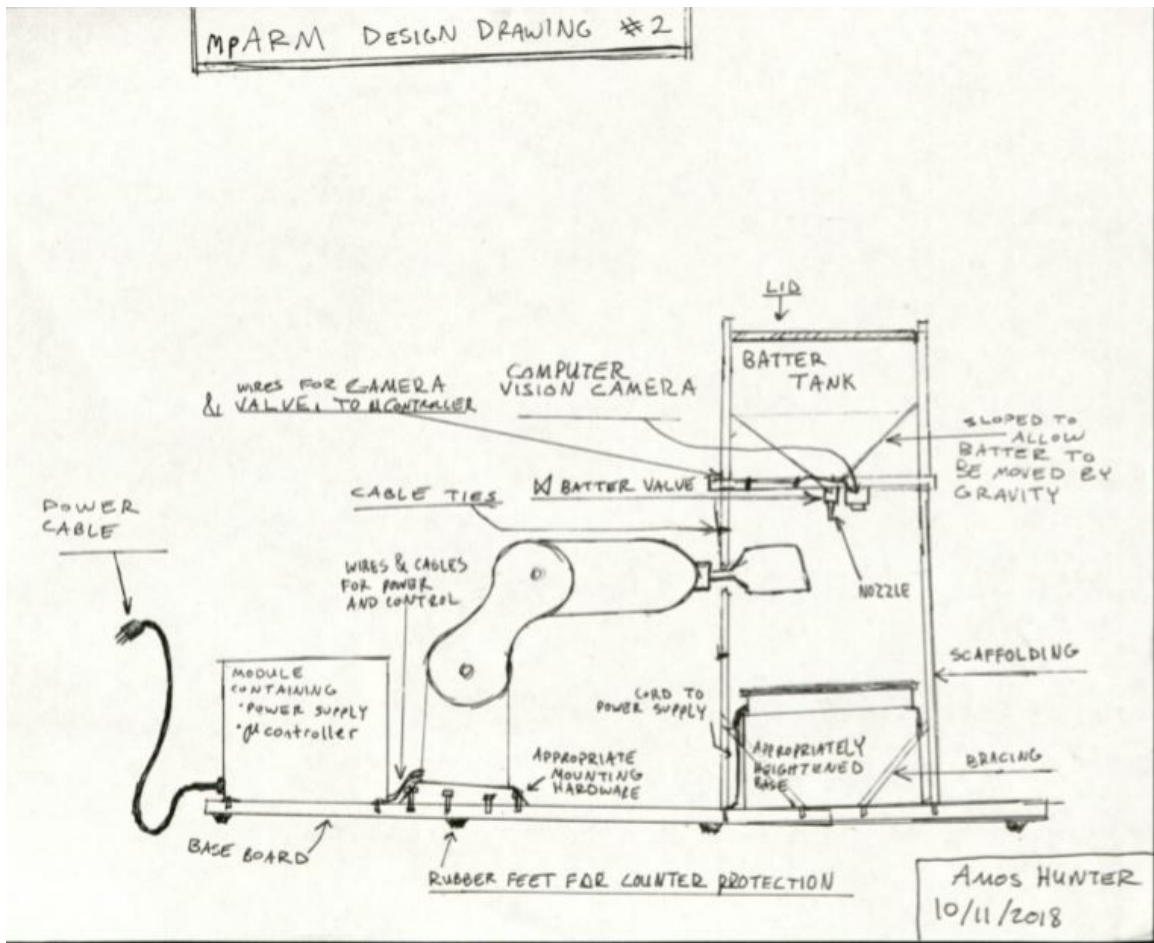 mpARM DESIGN DRAWING #2
LID
BATTER
TANK
COMPUTER
VISION CAMERA
WIRES FOR CAMERA
& VALVE, TO μCONTROLLER
SLOPED TO
ALLOW
BATTER TO
BE MOVED BY
GRAVITY
CABLE TIES
⋈ BATTER VALVE
POWER
CABLE
WIRES & CABLES
FOR POWER
AND CONTROL
NOZZLE
SCAFFOLDING
MODULE
CONTAINING
•POWER SUPPLY
•μcontroller
CORD TO
POWER SUPPLY
APPROPRIATE
MOUNTING
HARDWARE
APPROPRIATELY
HEIGHTENED
BASE
BRACING
BASE BOARD
RUBBER FEET FOR COUNTER PROTECTION
AMOS HUNTER
10/11/2018